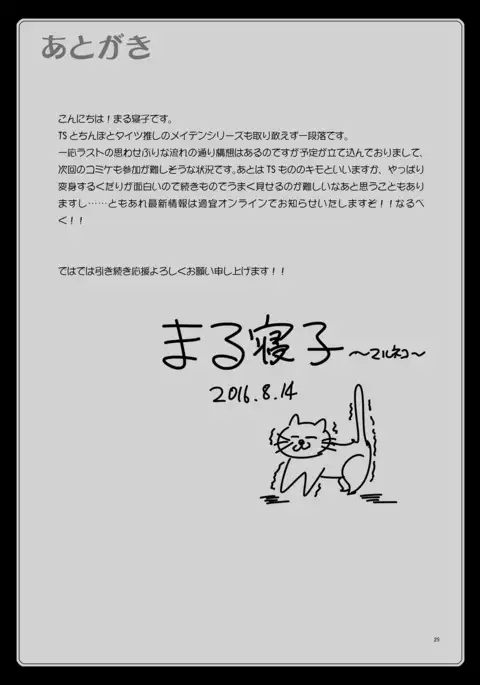 あとがき
こんにちは！まる寝子です。
TSとちんぽとタイツ推しのメイデンシリーズも取り敢えず一段落です。
一応ラストの思わせぶりな流れの通り構想はあるのですが予定が立て込んでおりまして、
次回のコミケも参加が難しそうな状況です。あとはTSもののキモといいますか、やっぱり
変身するくだりが面白いので続きものでうまく見せるのが難しいなあと思うこともあり
ますし……ともあれ最新情報は適宜オンラインでお知らせいたしますぞ！！なるべ
く！！
ではでは引き続き応援よろしくお願い申し上げます！！
まる寝子 〜マルネコ〜
2016.8.14
25